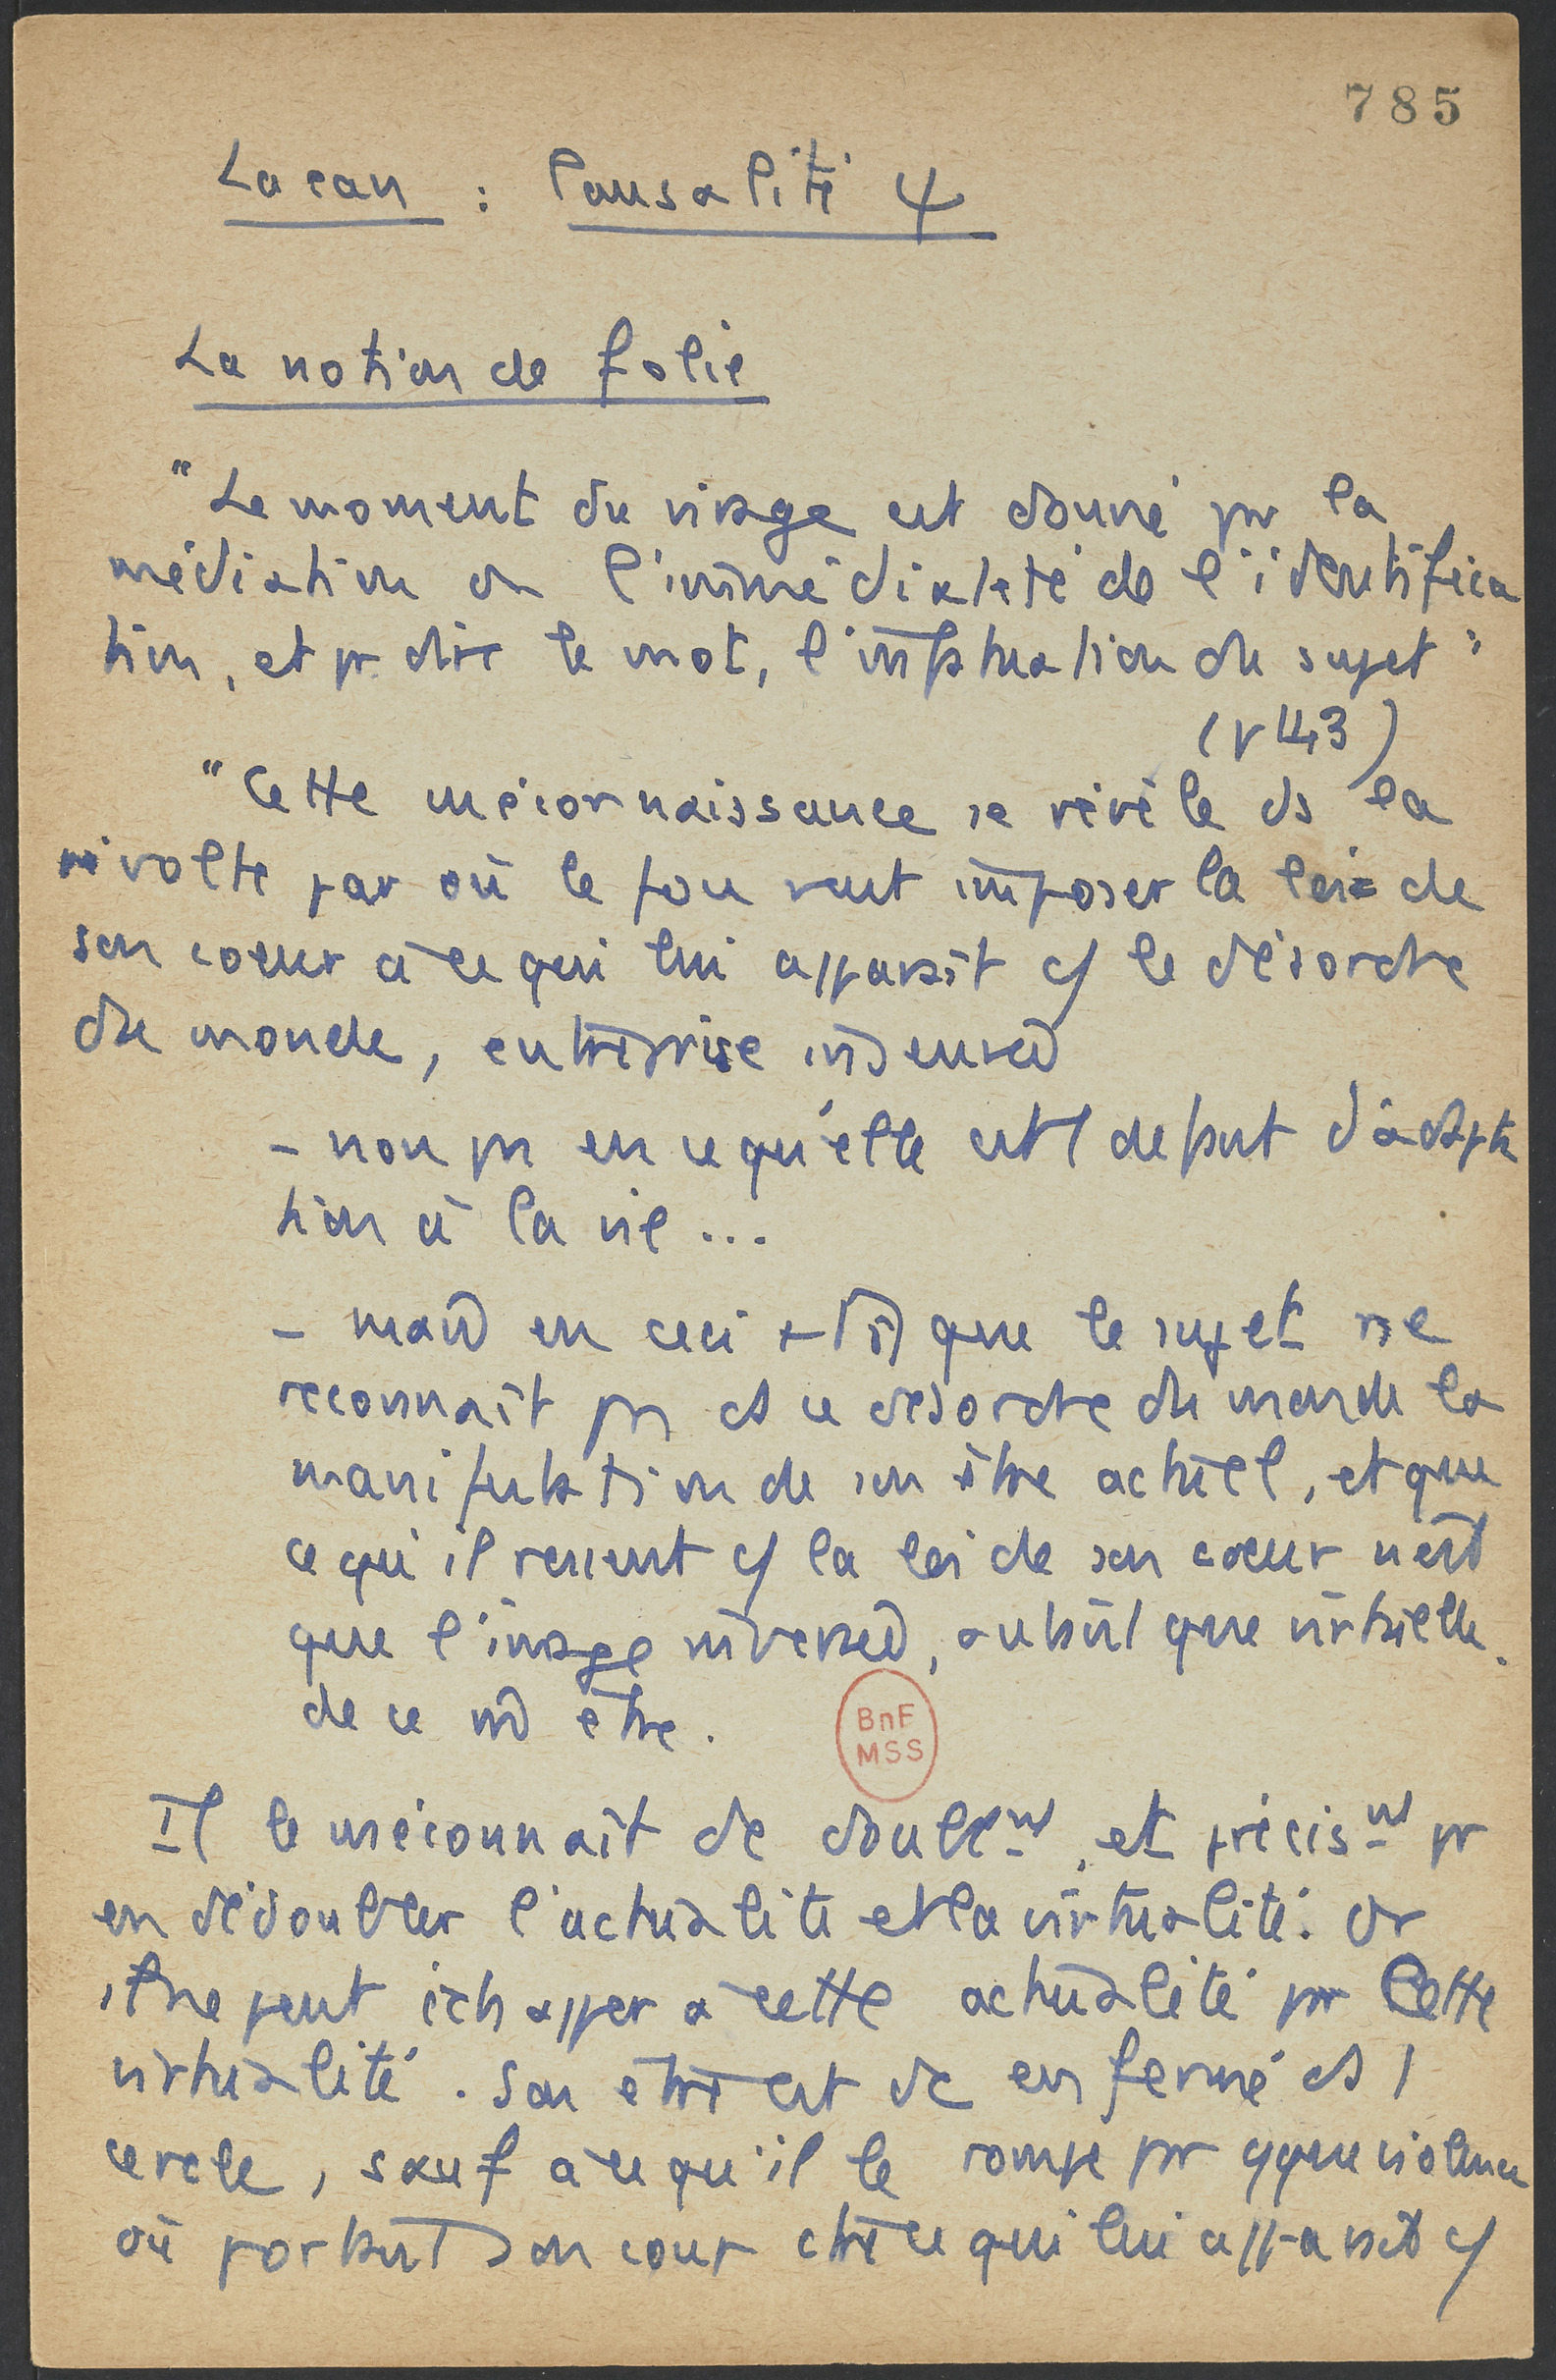 785
Lacan : Causalité ψ
La notion de folie
"Le moment du virage est donné pr la
médiation ou l'immédiateté de l'identifica
tion, et pr dire le mot, l'infatuation du sujet"
(p 143)
"Cette méconnaissance se révèle ds la
révolte par où le fou veut imposer la loi de
son coeur à ce qui lui apparaît c/ le désordre
du monde, entreprise insensée
- non pas en ce qu'elle est 1 defaut d'adapta
tion à la vie ...
- mais en ceci que le sujet ne
reconnaît pas ds ce désordre du monde la
manifestation de son être actuel, et que
ce qu'il ressent c/ la loi de son coeur n'est
que l'image inversée, autant que virtuelle.
de ce m̂ être.
Il le méconnaît dc doublemt, et précismt pr
en dédoubler l'actualité et la virtualité. Or
il ne peut échapper à cette actualité pr Cette
virtualité. Son être est dc enfermé ds 1
cercle, sauf à ce qu'il le rompe pr qque violence
où portant son coup ctre ce qui lui apparaît c/
BnF
MSS